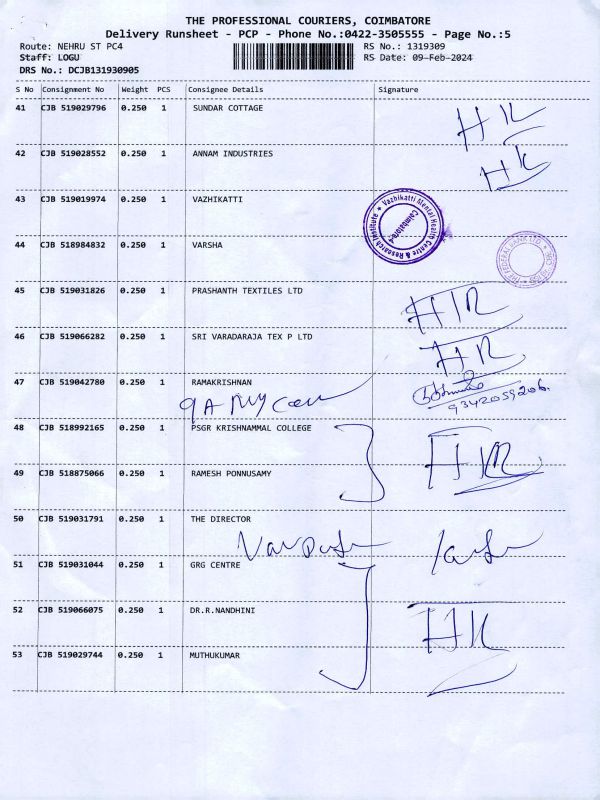 THE PROFESSIONAL COURIERS, COIMBATORE
Delivery Runsheet - PCP - Phone No.:0422-3505555 - Page No.:5
Route: NEHRU ST PC4 RS No.: 1319309
Staff: LOGU RS Date: 09-Feb-2024
DRS No.: DCJB131930905
S No Consignment No Weight PCS Consignee Details Signature
41 CJB 519029796 0.250 1 SUNDAR COTTAGE
HR
42 CJB 519028552 0.250 1 ANNAM INDUSTRIES
HR
43 CJB 519019974 0.250 1 VAZHIKATTI
Vazhikatti Mental Health Centre & Research Institute
Coimbatore-4
44 CJB 518984832 0.250 1 VARSHA
THE FEDERAL BANK LTD.
45 CJB 519031826 0.250 1 PRASHANTH TEXTILES LTD
HR
46 CJB 519066282 0.250 1 SRI VARADARAJA TEX P LTD
HR
47 CJB 519042780 0.250 1 RAMAKRISHNAN
9342059206
48 CJB 518992165 0.250 1 PSGR KRISHNAMMAL COLLEGE
HR
49 CJB 518875066 0.250 1 RAMESH PONNUSAMY
50 CJB 519031791 0.250 1 THE DIRECTOR
51 CJB 519031044 0.250 1 GRG CENTRE
52 CJB 519066075 0.250 1 DR.R.NANDHINI
HR
53 CJB 519029744 0.250 1 MUTHUKUMAR